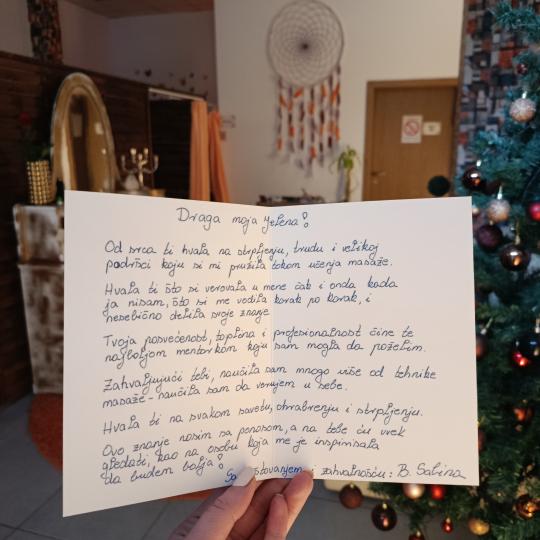 Draga moja Jelena!
Od srca ti hvala na strpljenju, trudu i velikoj
podršci koju si mi pružila tokom učenja masaže.
Hvala ti što si verovala u mene čak i onda kada
ja nisam, što si me vodila korak po korak, i
nesebično delila svoje znanje
Tvoja posvećenost, toplina i profesionalnost čine te
najboljom mentorkom koju sam mogla da poželim.
Zahvaljujući tebi, naučila sam mnogo više od tehnike
masaže - naučila sam da verujem u sebe.
Hvala ti na svakom savetu, ohrabrenju i strpljenju.
Ovo znanje nosim sa ponosom, a na tebe ću uvek
gledati, kao na osobu koja me je inspirisala
da budem bolja!
i zahvalnošću: B. Sabina